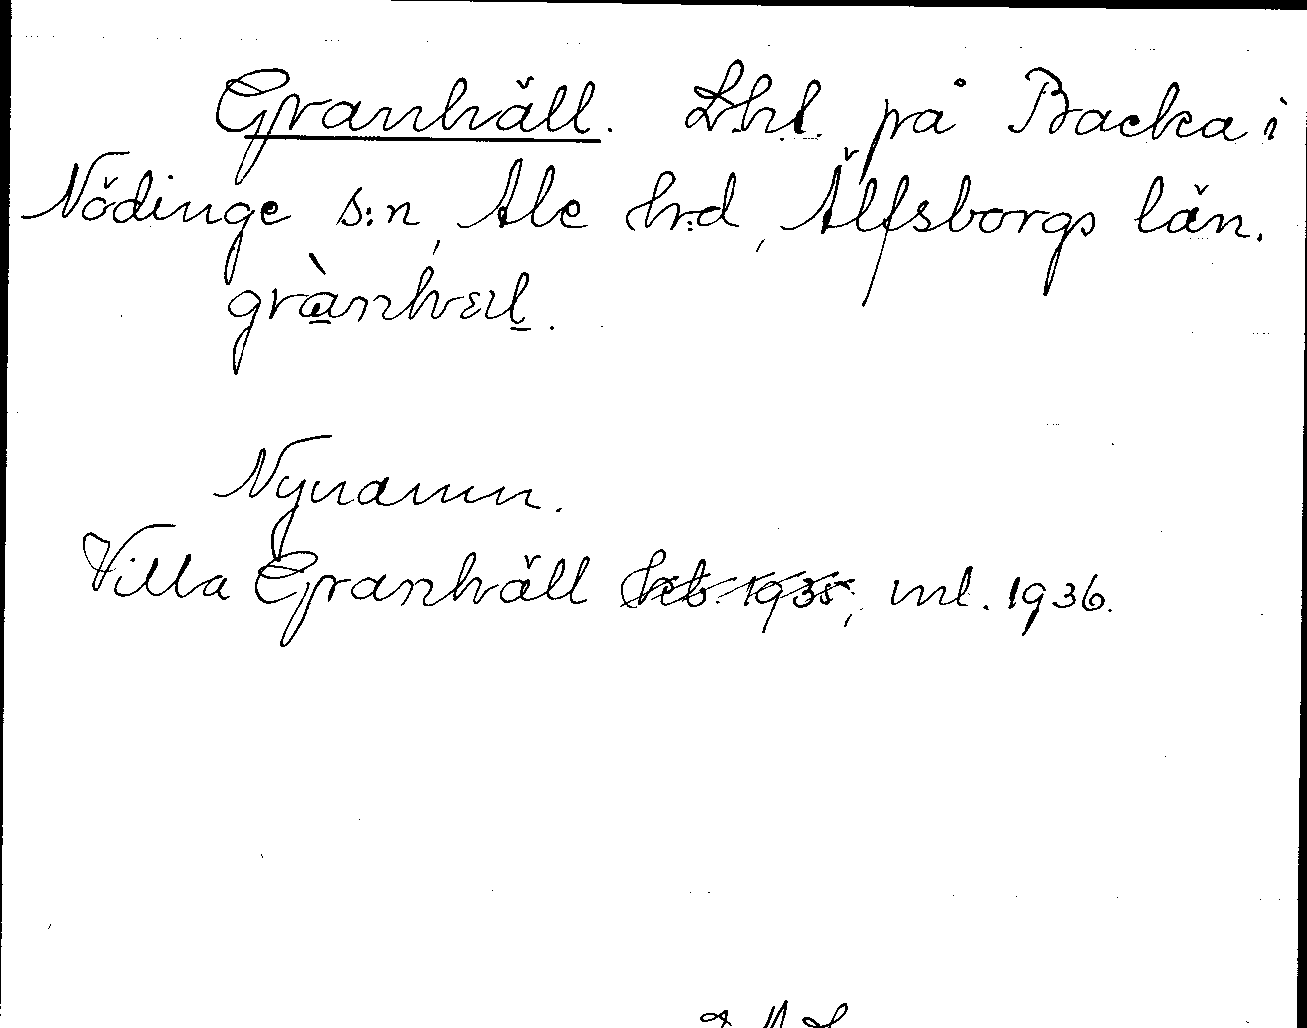 Granhäll. Lhl. på Backa i
Nödinge s:n, Ale h:d, Älfsborgs län.
Nynamn.
Villa Granhäll heb. 1935, ml. 1936.